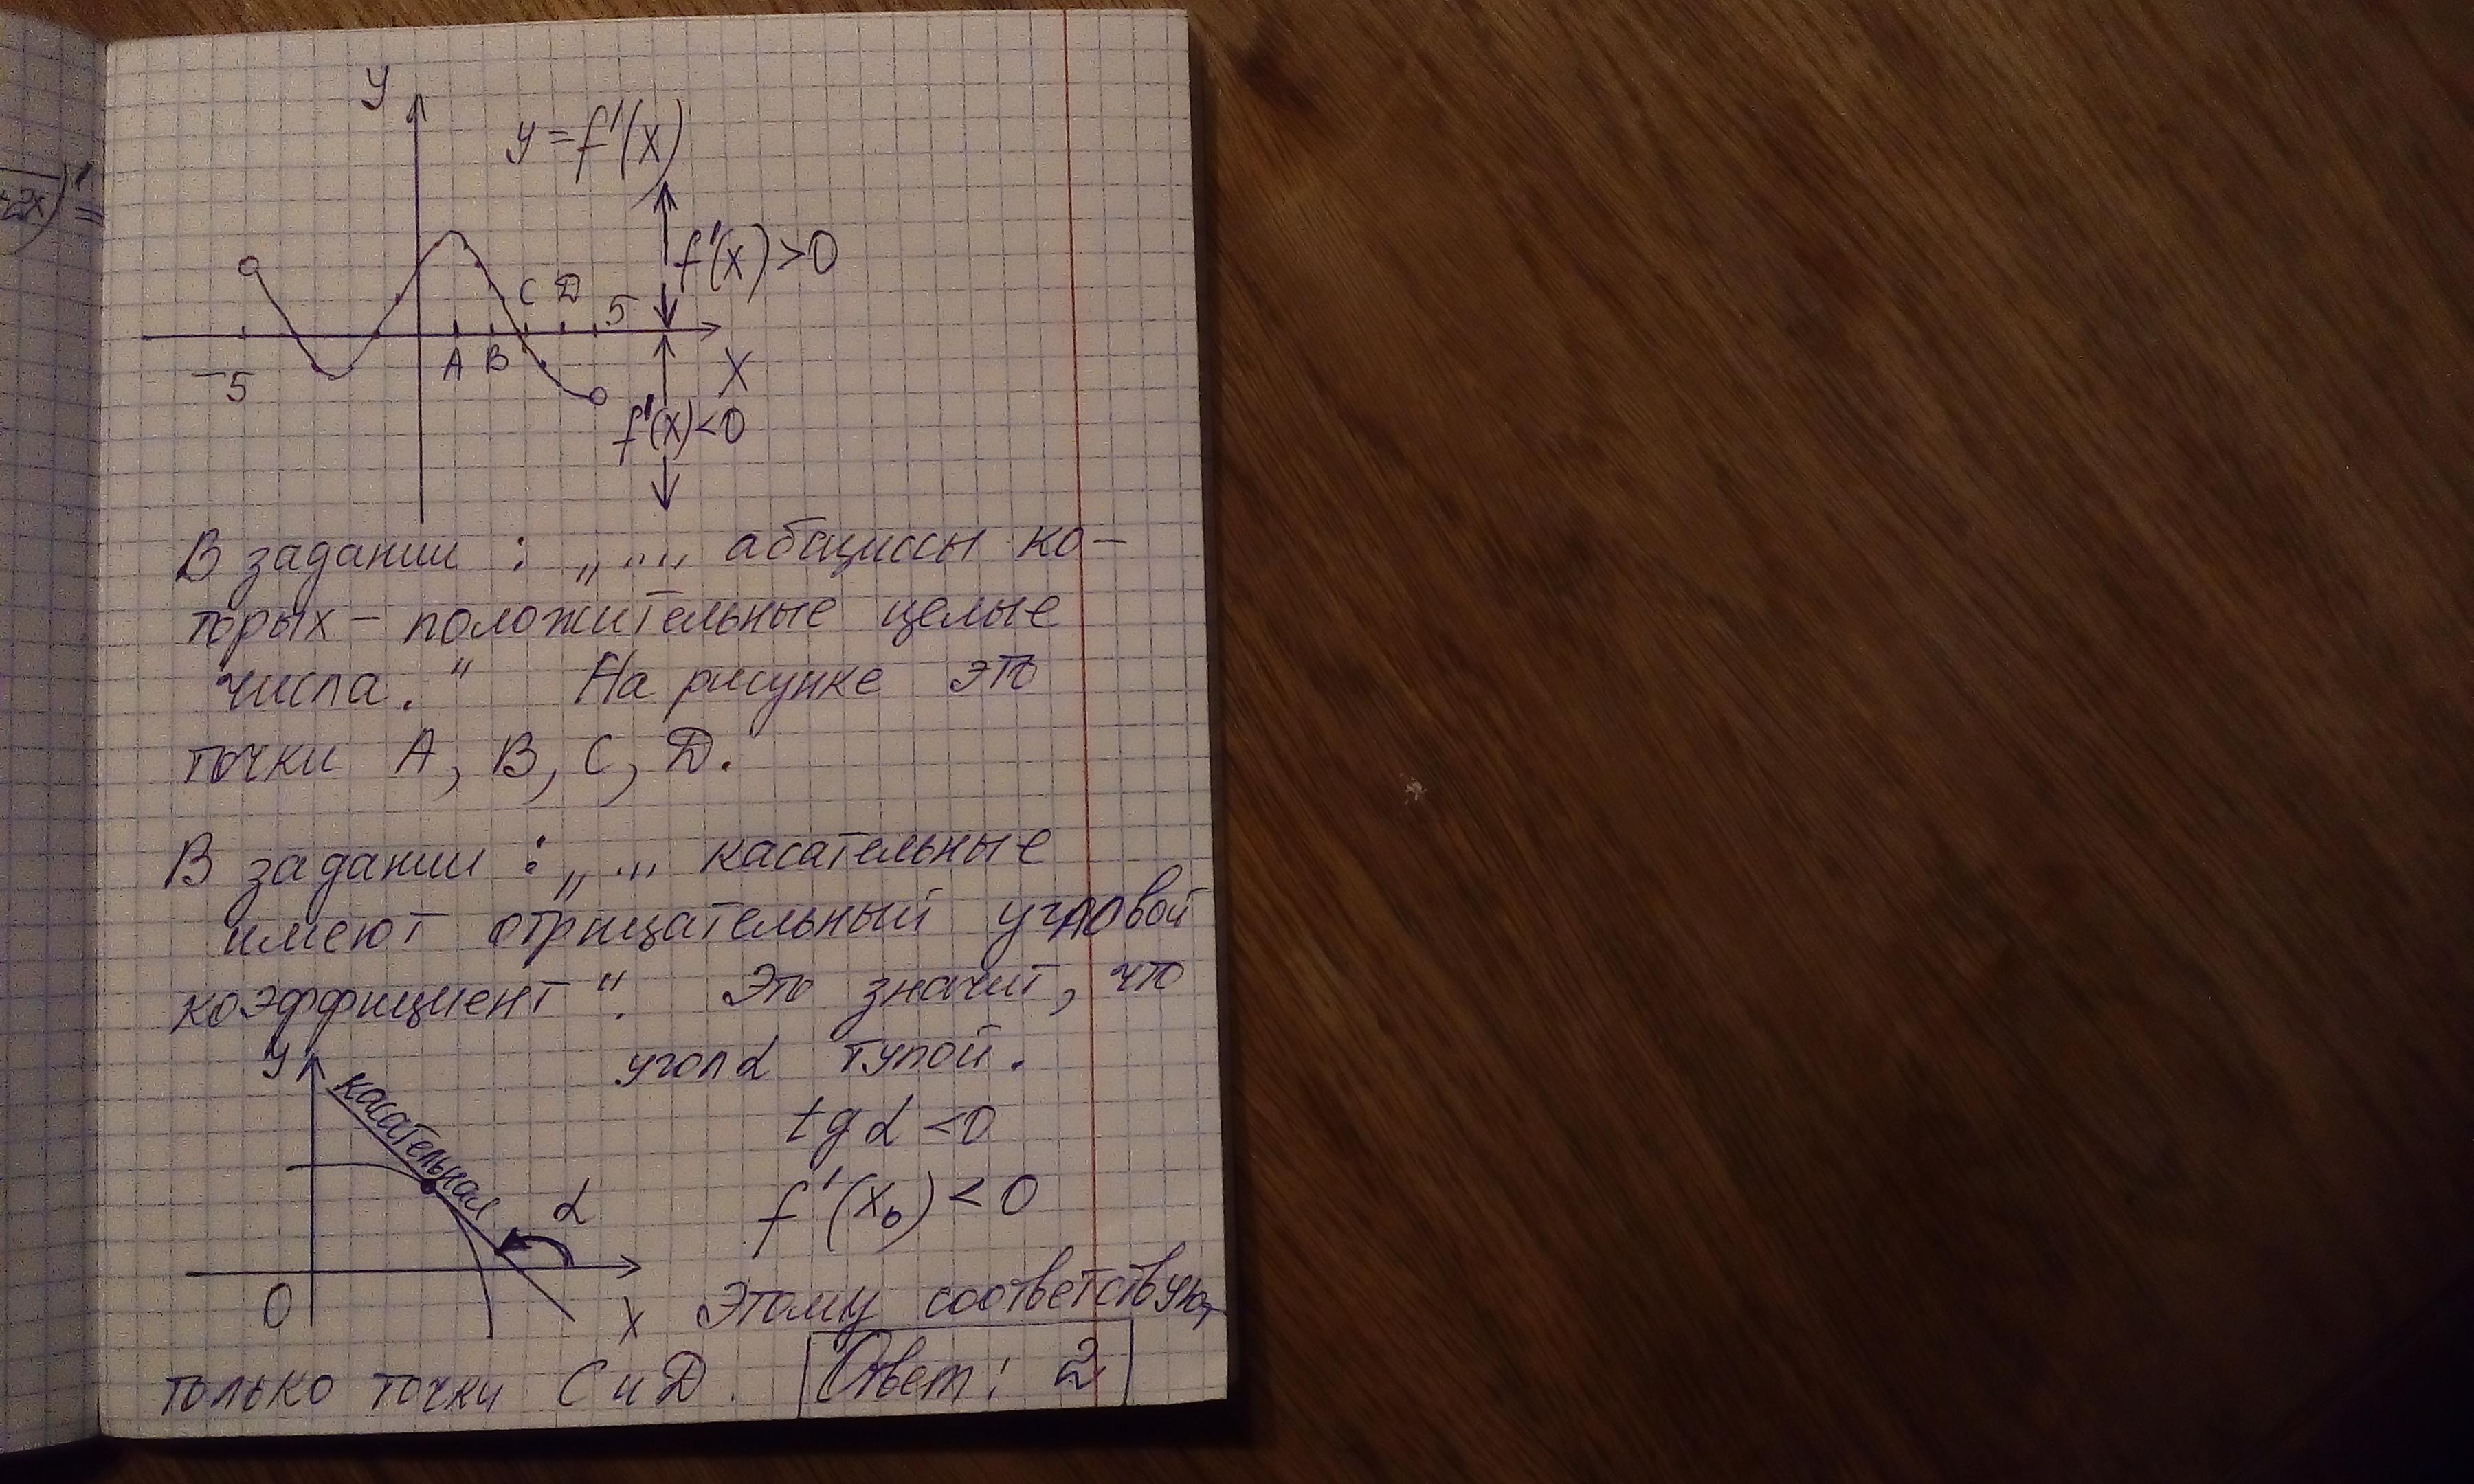 y
y=f'(x)
f'(x)>0
C D
5
A B
-5
X
f'(x)<0
В задании : „...„ абациссы ко-
торых – положительные целые
числа." На рисунке это
точки А, В, С, D.
В задании : „... касательные
имеют отрицательный угловой
коэффициент". Это значит, что
угол α тупой.
y
касательная
tg α <0
α
f'(x₀) < 0
0
x
Этому соответствуют
только точки С и D. Ответ: 2
+2x)'=